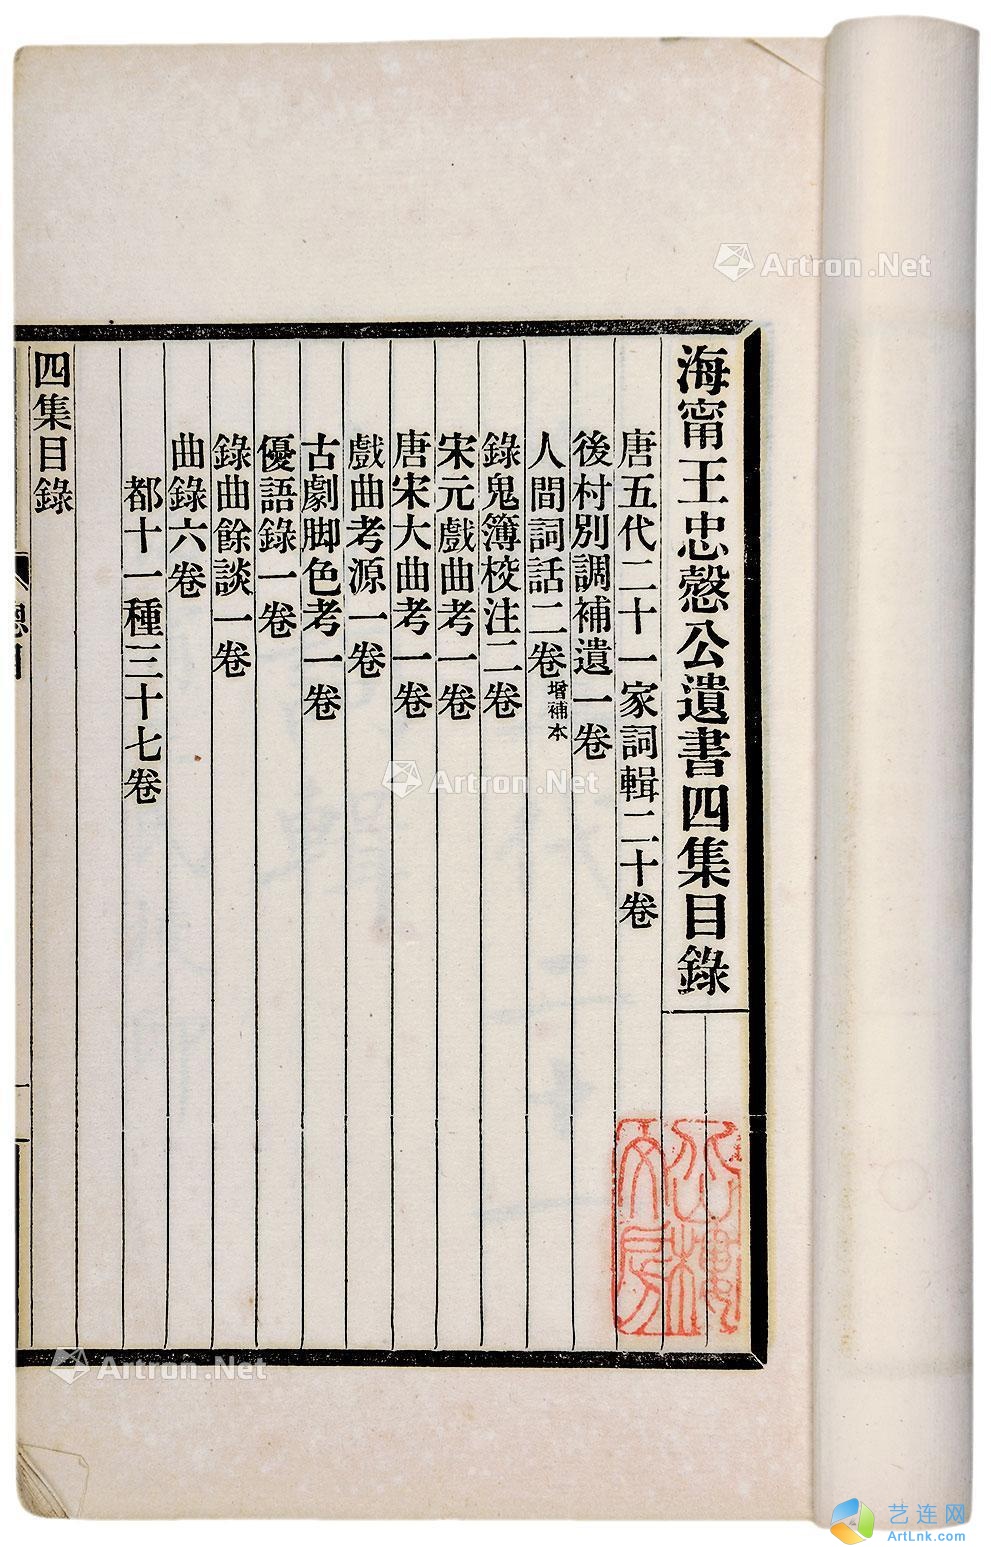 海甯王忠慤公遺書四集目錄
唐五代二十一家詞輯二十卷
後村別調補遺一卷
人間詞話二卷增補本
錄鬼簿校注二卷
宋元戲曲考一卷
唐宋大曲考一卷
戲曲考源一卷
古劇脚色考一卷
優語錄一卷
錄曲餘談一卷
曲錄六卷
都十一種三十七卷
四集目錄
總目
Artron.Net
Artron.Net
Artron.Net
艺连网
ArtLnk.com